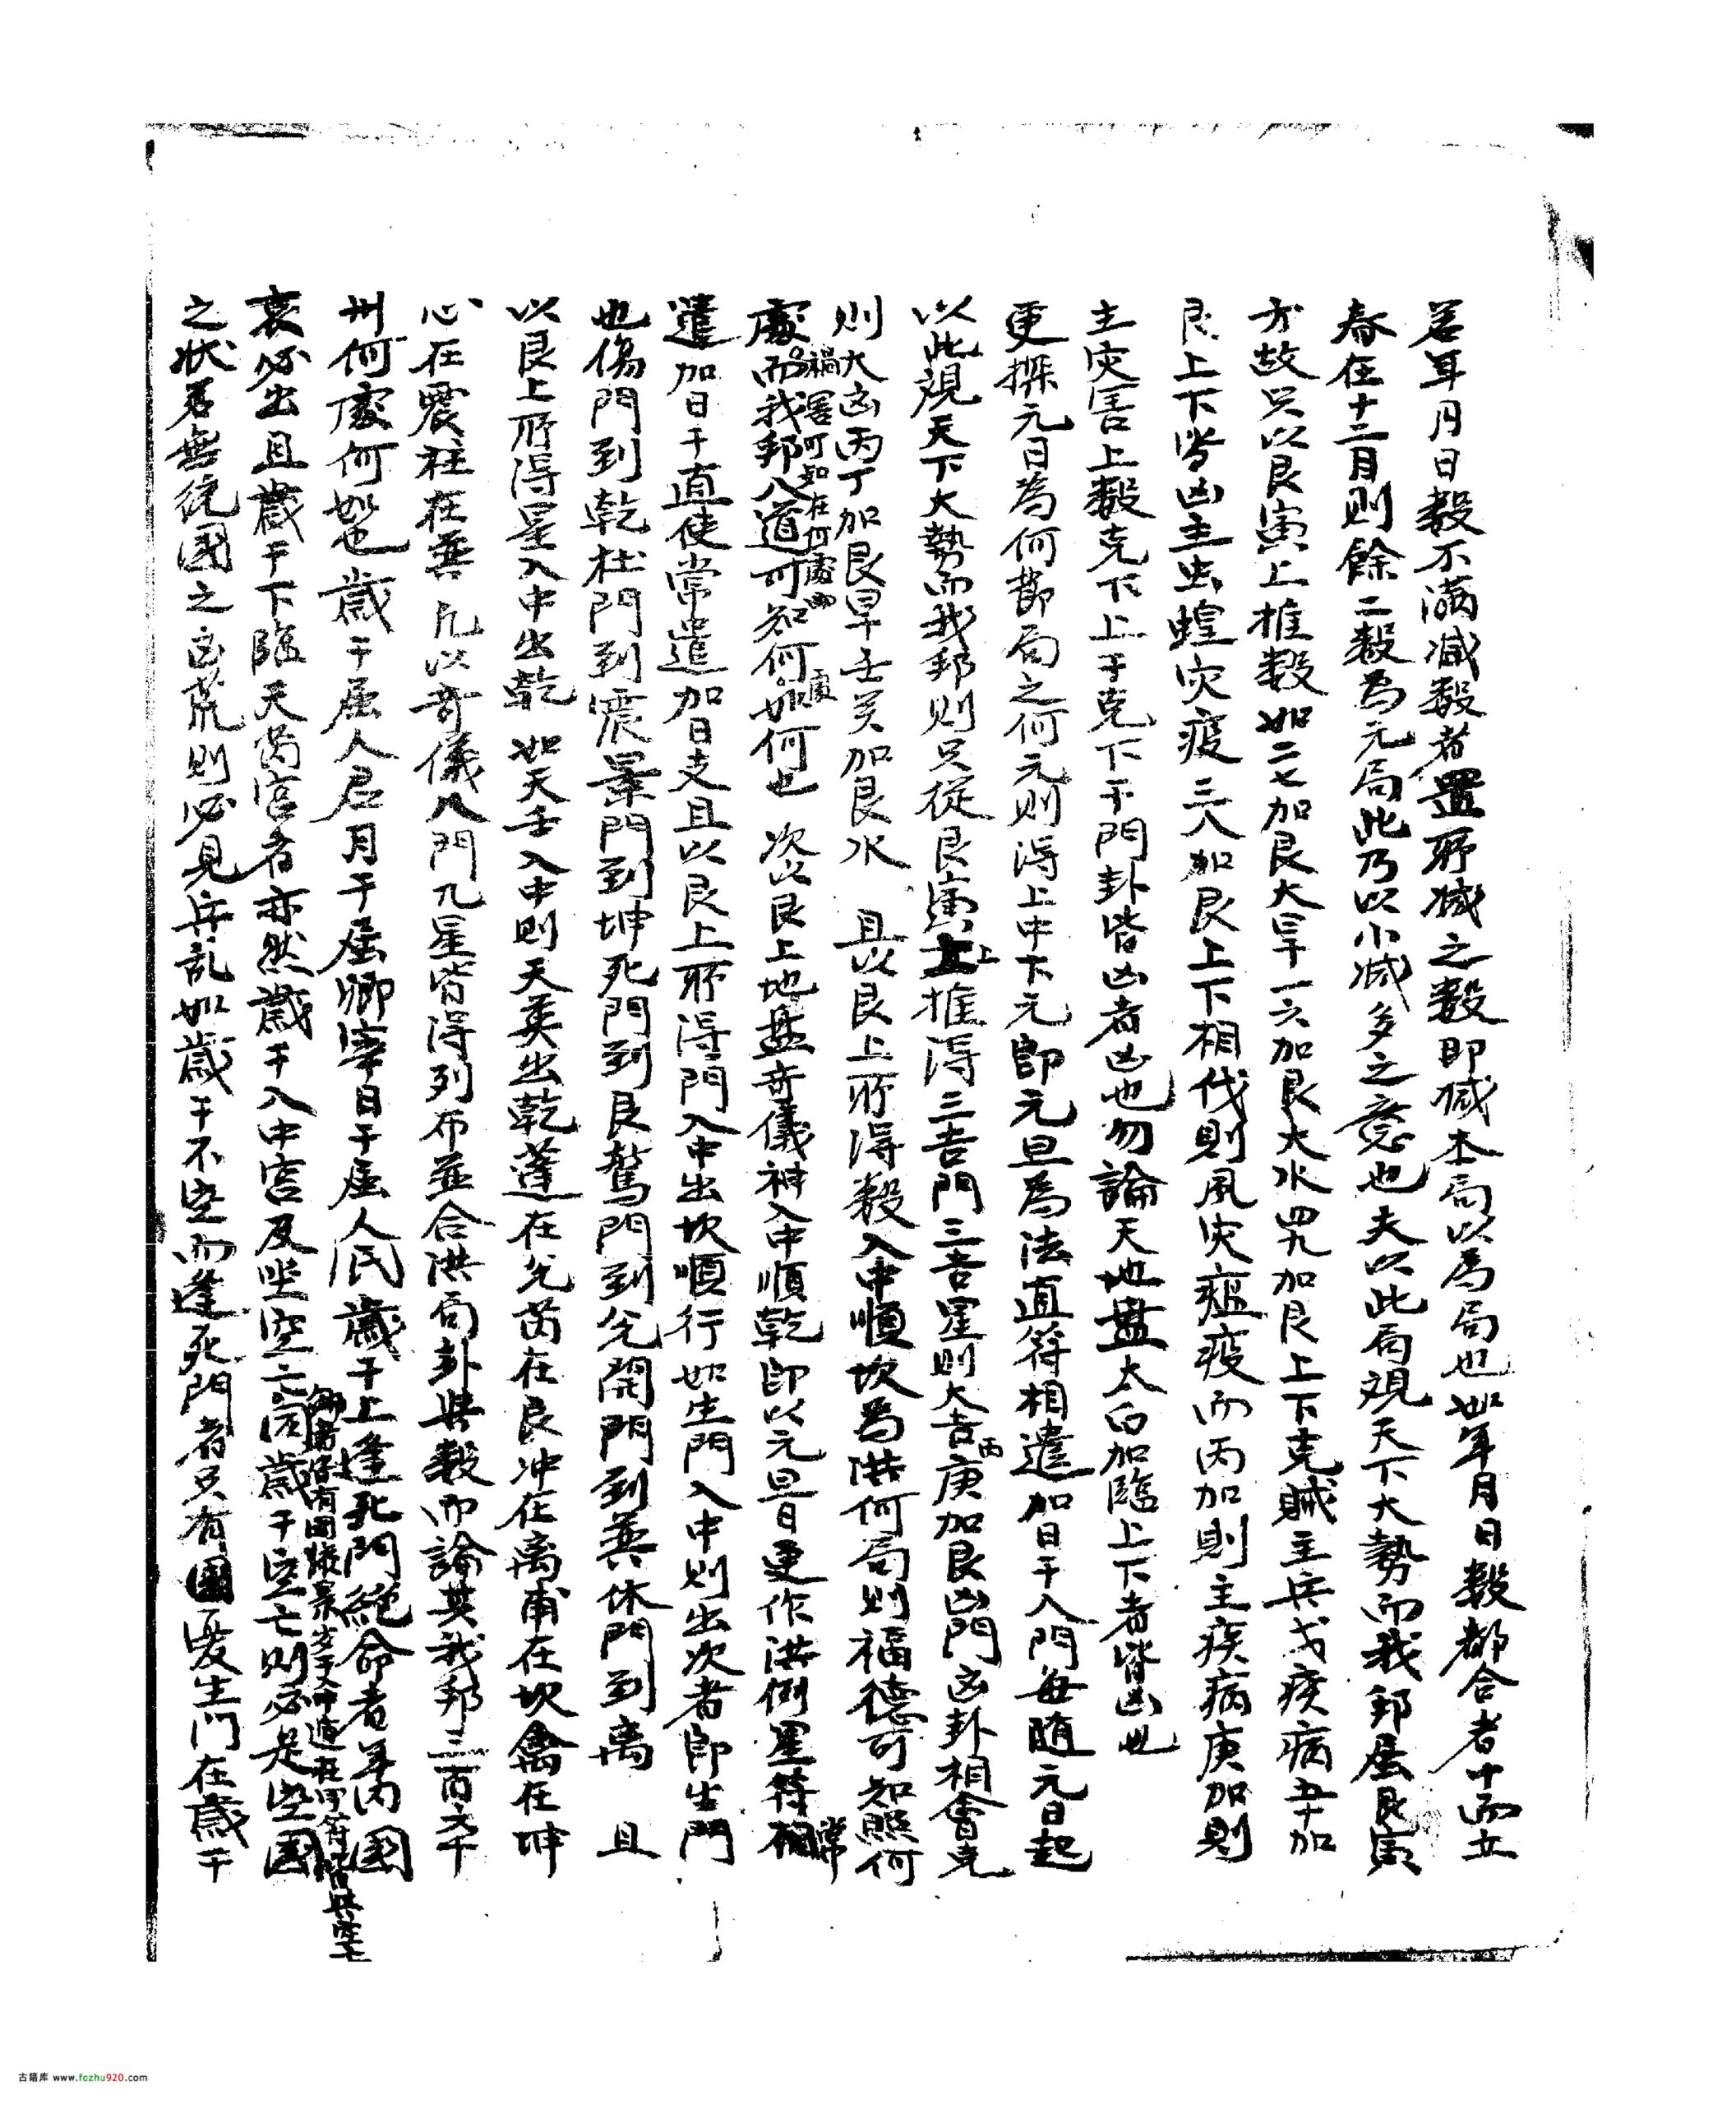 若年月日数不滿减数者置所减之数即减本局以為局也如年月日数都合者十而立
春在十二月則餘二数為元局此乃以小减多之意也夫以此局观天下大勢而我邦屬艮寅
方故只以艮寅上推数如二七加艮大旱一六加艮大水四九加艮上下克贼主兵戈疾病五十加
艮上下皆凶主虫蝗灾疫三八加艮上下相伐則風灾瘟疫而丙加則主疾病庚加則
主灾害上数克下上干克下干門卦皆凶者凶也勿論天地盤太白加臨上下者皆凶也
更探元日為何節局之何元则得上中下元即元旦為法直符相遣加日干入門每隨元日起
以此視天下大勢而我邦則只從艮寅上推得三吉門三吉星則大吉丙庚加艮凶門凶卦相會克
則大凶丙丁加艮旱壬癸加艮水 且以艮上所得数入中順坎為洪何局則福德可知照何
處禍害可知在何處而我邦八道可知何處如何也 次以艮上地盤奇儀神入中順乾即以元日更作洪例星符相常
遣加日干直使常遣加日支且以艮上所得門入中出坎順行如生門入中则出次者即生門
也傷門到乾杜門到震景門到坤死門到艮驚門到兌開門到巽休門到离 且
以艮上所得星入中出乾如天壬入中則天英出乾蓬在兌芮在艮冲在离甫在坎禽在坤
心在震柱在巽凡以奇儀八門九星皆得列布並合洪局卦與数而論其我邦三百六十
州何處何如也歲干屬人君月干屬卿宰日干屬人民歲干上逢死門絕命者年內國
哀必出且歲干下臨天芮宮者亦然歲干入中宮及坐空亡因歲干空亡則必是空國
之状若無統國之凶荒則必見兵乱如歲干不空而逢死門者只有國憂生門在歲干